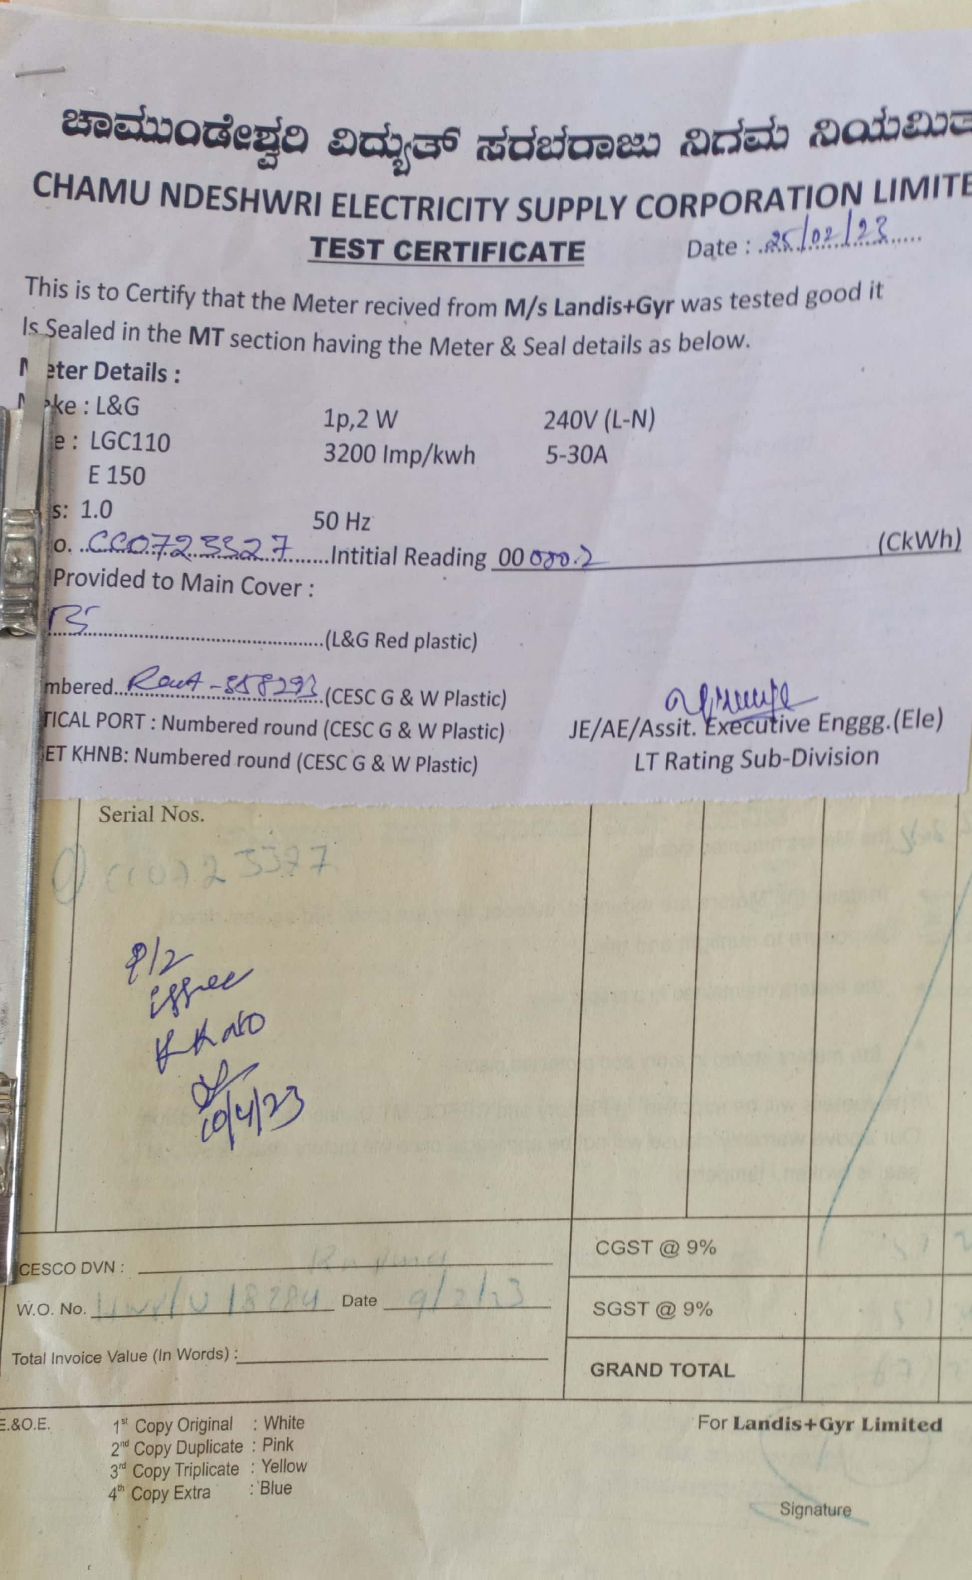 ಚಾಮುಂಡೇಶ್ವರಿ ವಿದ್ಯುತ್ ಸರಬರಾಜು ನಿಗಮ ನಿಯಮಿತ
CHAMU NDESHWRI ELECTRICITY SUPPLY CORPORATION LIMITE
TEST CERTIFICATE Date : 25/02/23
This is to Certify that the Meter recived from M/s Landis+Gyr was tested good it
Is Sealed in the MT section having the Meter & Seal details as below.
eter Details :
ke : L&G 1p,2 W 240V (L-N)
e : LGC110 3200 Imp/kwh 5-30A
E 150
s: 1.0 50 Hz
o. CC0723327 Intitial Reading 00000.2 (CkWh)
Provided to Main Cover :
(L&G Red plastic)
mbered 858293 (CESC G & W Plastic)
TICAL PORT : Numbered round (CESC G & W Plastic) JE/AE/Assit. Executive Enggg.(Ele)
ET KHNB: Numbered round (CESC G & W Plastic) LT Rating Sub-Division
Serial Nos.
10/4/23
CGST @ 9%
CESCO DVN :
W.O. No. Date 9/2/23
SGST @ 9%
Total Invoice Value (In Words) :
GRAND TOTAL
E.&O.E. 1st Copy Original : White
2nd Copy Duplicate : Pink
3rd Copy Triplicate : Yellow
4th Copy Extra : Blue
For Landis+Gyr Limited
Signature